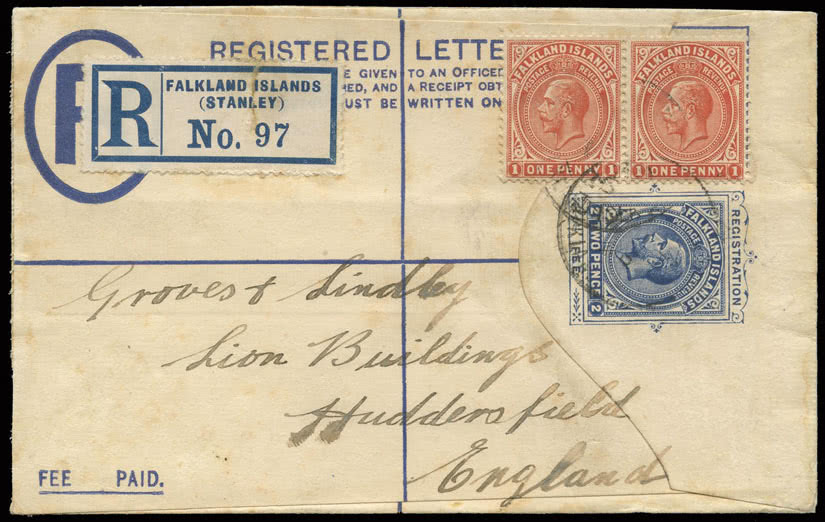 REGISTERED LETTE
E GIVEN TO AN OFFICE
ED, AND A RECEIPT OBT
UST BE WRITTEN ON
R
FALKLAND ISLANDS
(STANLEY)
No. 97
FALKLAND ISLANDS
POSTAGE REVENUE
1 ONE PENNY 1
FALKLAND ISLANDS
POSTAGE REVENUE
1 ONE PENNY 1
REGISTRATION
FEE
FALKLAND ISLANDS
POSTAGE REVENUE
2 TWO PENCE 2
Groves & Lindley
Lion Buildings
Huddersfield
England
FEE PAID.